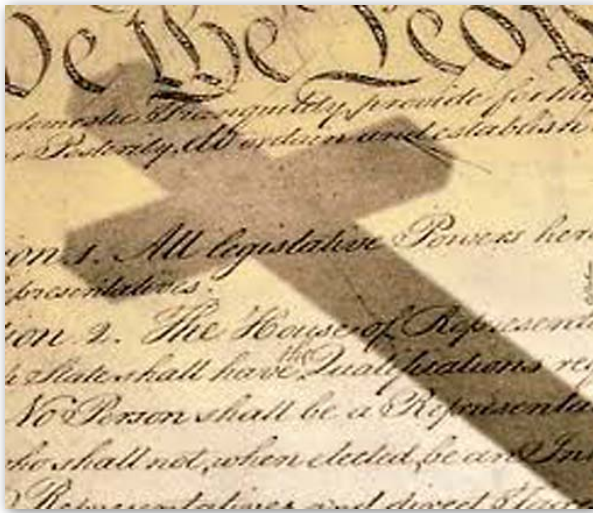 We the People
domestic Tranquility, provide for the
r Posterity, do ordain and establish
on. 1. All legislative Powers her
presentatives.
ion. 2. The House of Represent
the
State shall have Qualifications re
No Person shall be a Representa
ho shall not, when elected, be an In
Representatives and direct